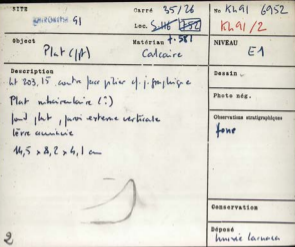 SITE
KATHYDATA 91
Carré 35/26
No Kh91 6952
Loc. S.116 752
Kh91/2
Object
Plat (pt)
Matériau 7.581
Calcaire
NIVEAU
E1
Description
ht 203,15, contre face pilier
Plat rudimentaire (?)
fond plat, paroi externe verticale
lèvre amincie
14,5 x 8,2 x 4,1 cm
Dessin
Photo nég.
Observations stratigraphiques
fosse
Conservation
Déposé
musée Larnaca